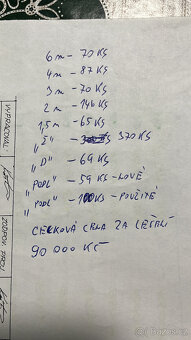 6 m - 70 KS
4 m - 87 KS
3 m - 70 KS
2 m - 146 KS
1,5m - 65 KS
"I" - 370 KS
"D" - 69 KS
"PODL" - 59 KS - NOVÉ
"PODL" - 100KS - POUŽITÉ
CELKOVÁ CENA ZA LEŠENÍ
90 000 KČ
VYPRACOVAL: